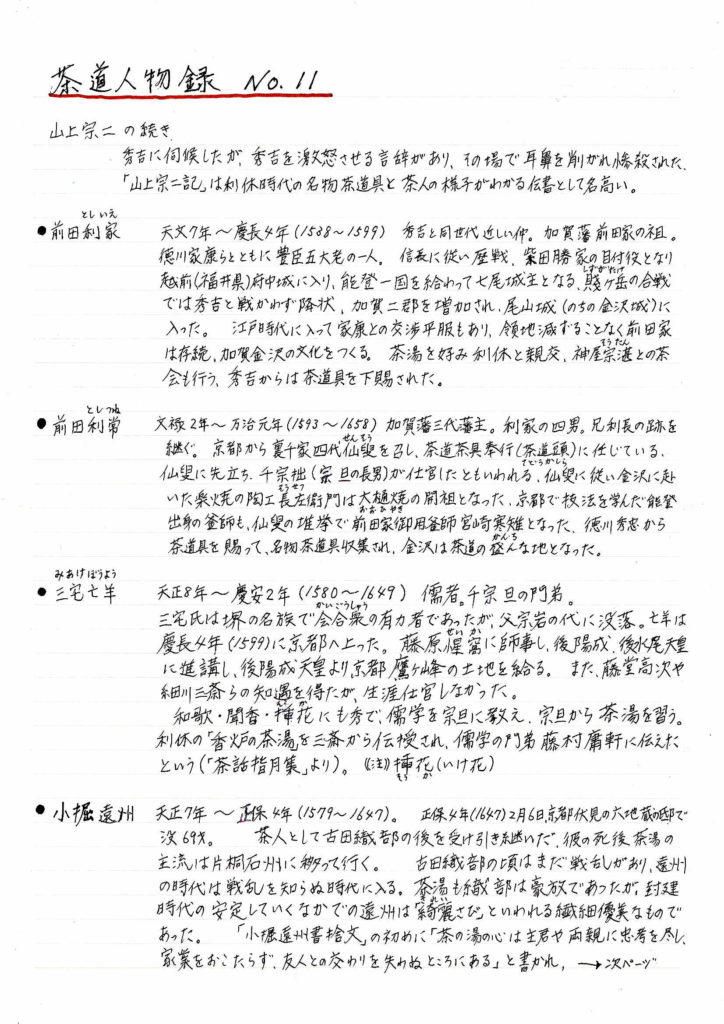 茶道人物録 No.11
山上宗二の続き
秀吉に伺候したが、秀吉を激怒させる言辞があり、その場で耳鼻を削がれ惨殺された。
「山上宗二記」は利休時代の名物茶道具と茶人の様子がわかる伝書として名高い。
としいえ
●前田利家 天文7年～慶長4年(1538～1599) 秀吉と同世代近しい仲。加賀藩前田家の祖。
徳川家康らとともに豊臣五大老の一人。信長に従い歴戦、柴田勝家の目付役となり
越前(福井県)府中城に入り、能登一国を給わって七尾城主となる、賤ヶ岳の合戦
しずがたけ
では秀吉と戦かわず降状、加賀二郡を増加され、尾山城(のちの金沢城)に
入った。 江戸時代に入って家康との交渉平服もあり、領地減ずることなく前田家
は存続、加賀金沢の文化をつくる。 茶湯を好み利休と親交、神屋宗湛との茶
そうたん
会も行う、秀吉からは茶道具を下賜された。
としつね
●前田利常 文禄2年～万治元年(1593～1658) 加賀藩三代藩主。利家の四男。兄利長の跡を
継ぐ。京都から裏千家四代仙叟を召し、茶道茶具奉行(茶道頭)に任じている、
せんそう
さどうかしら
仙叟に先立ち、千宗拙(宗旦の長男)が仕官したともいわれる、仙叟に従い金沢に赴
そうせつ
いた楽焼の陶工長左衛門は大樋焼の開祖となった、京都で技法を学んだ能登
おおひやき
出身の釜師も、仙叟の推挙で前田家御用釜師宮崎寒雉となった、徳川秀忠から
かんち
茶道具を賜って、名物茶道具収集され、金沢は茶道の盛んな地となった。
みあけぼうよう
●三宅亡羊 天正8年～慶安2年(1580～1649) 儒者。千宗旦の門弟。
かいごうしゅう
三宅氏は堺の名族で会合衆の有力者であったが、父宗岩の代に没落。亡羊は
慶長4年(1599)に京都へ上った。藤原惺窩に師事し、後陽成、後水尾天皇
せいか
に進講し、後陽成天皇より京都鷹ヶ峰の土地を給る。また、藤堂高次や
細川三斎らの知遇を得たが、生涯仕官しなかった。
和歌・聞香・挿花にも秀で、儒学を宗旦に教え、宗旦から茶湯を習う。
利休の「香炉の茶湯」を三斎から伝授され、儒学の門弟藤村庸軒に伝えた
という(「茶話指月集」より)。《注》挿花(いけ花)
そう か
●小堀遠州 天正7年～正保4年(1579～1647)。 正保4年(1647)2月6日、京都伏見の六地蔵の邸で
没69才。 茶人として古田織部の後を受け引き継いだ、彼の死後茶湯の
主流は片桐石州に移って行く。 古田織部の頃はまだ戦乱があり、遠州
の時代は戦乱を知らぬ時代に入る。茶湯も織部は豪放であったが、封建
時代の安定していくなかでの遠州は「綺麗さび」といわれる繊細優美なもので
きれい
あった。 「小堀遠州書捨文」の初めに「茶の湯の心は主君や両親に忠孝を尽し、
家業をおこたらず、友人との交わりを失わぬところにある」と書かれ, →次ページ